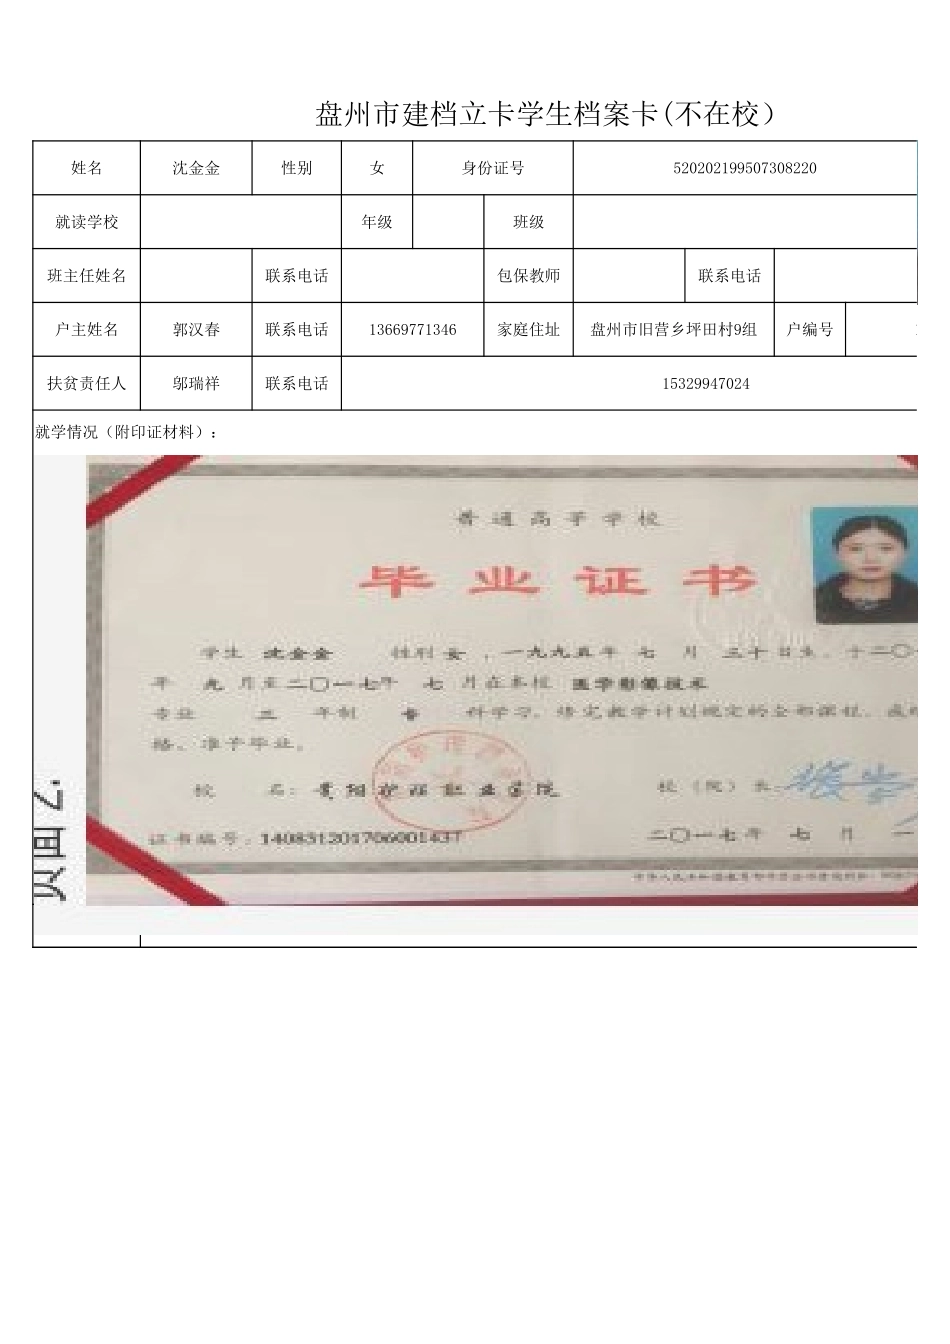 盘州市建档立卡学生档案卡(不在校）
姓名 沈金金 性别 女 身份证号 520202199507308220
就读学校 年级 班级
班主任姓名 联系电话 包保教师 联系电话
户主姓名 郭汉春 联系电话 13669771346 家庭住址 盘州市旧营乡坪田村9组 户编号
扶贫责任人 邬瑞祥 联系电话 15329947024
就学情况（附印证材料）：
普通高等学校
毕业证书
学生 沈金金 性别 女 ，一九九五年 七 月 三十日生，于二〇
年 九 月至二〇一七年 七 月在本校 医学影像技术
专业 三 年制 专 科学习，修完教学计划规定的全部课程，成
格，准予毕业。
校 名：贵阳护理职业学院 校（院）长：
证书编号：140831201706001437 二〇一七年 七 月 一
页面